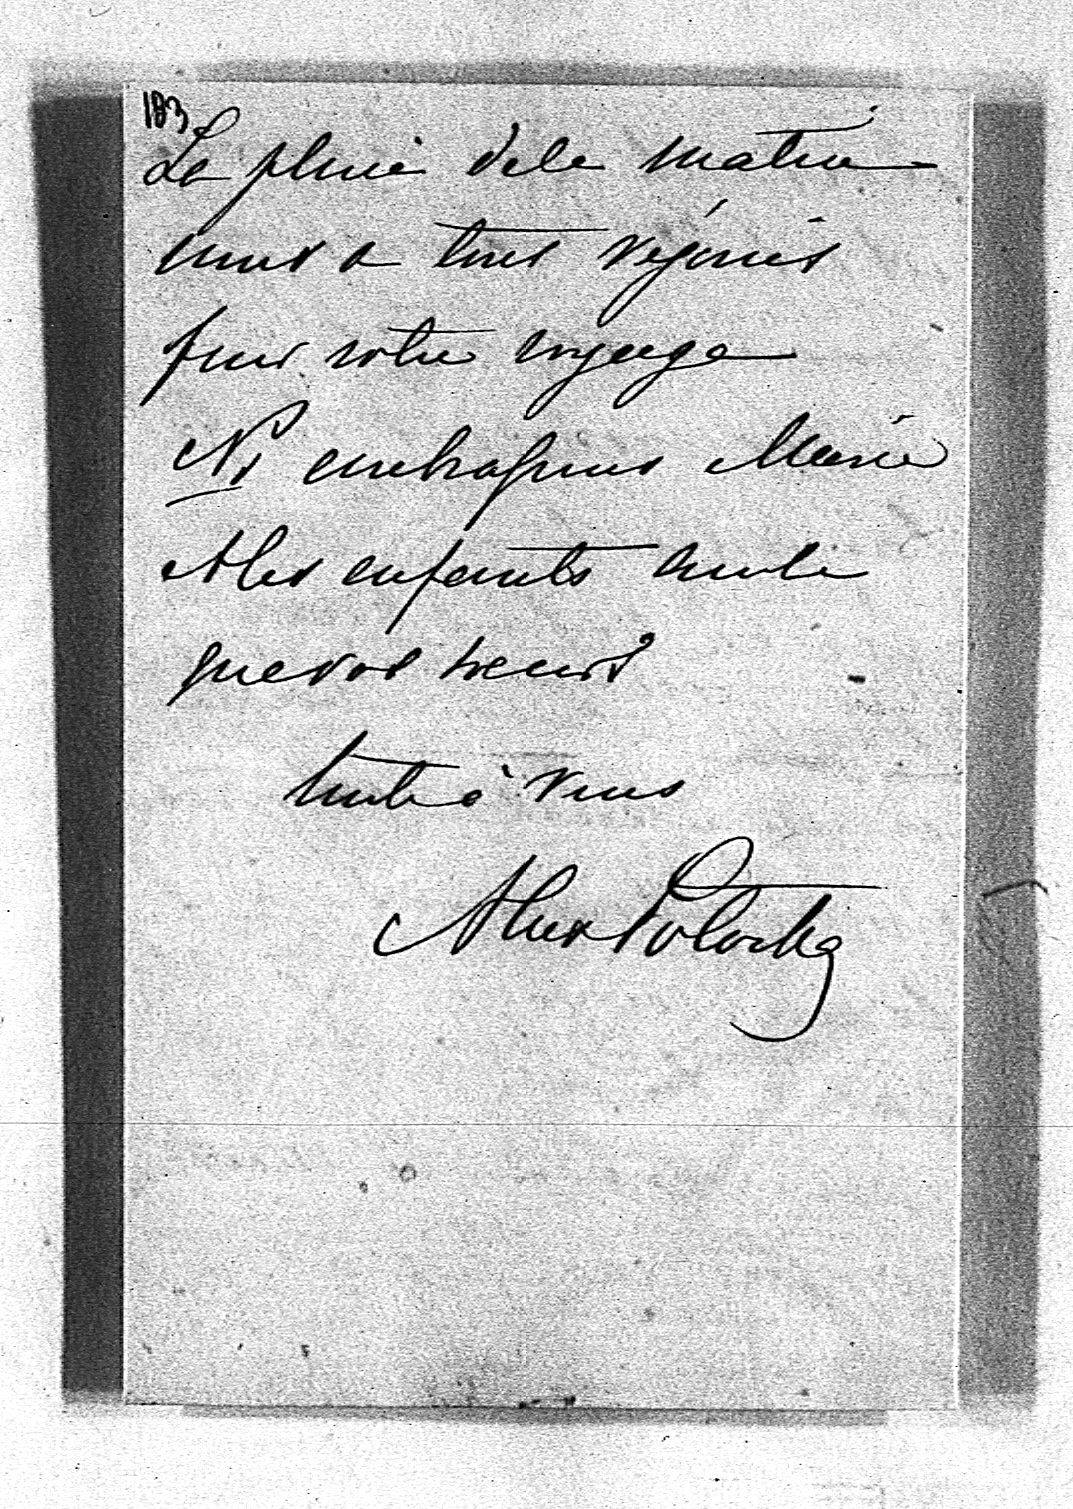 183
La pluie de la matinée
nous a tous réjouis
pour votre voyage
Ns embrassons Marie
& les enfants ainsi
que vos soeurs
toute à vous
Alex Potocka